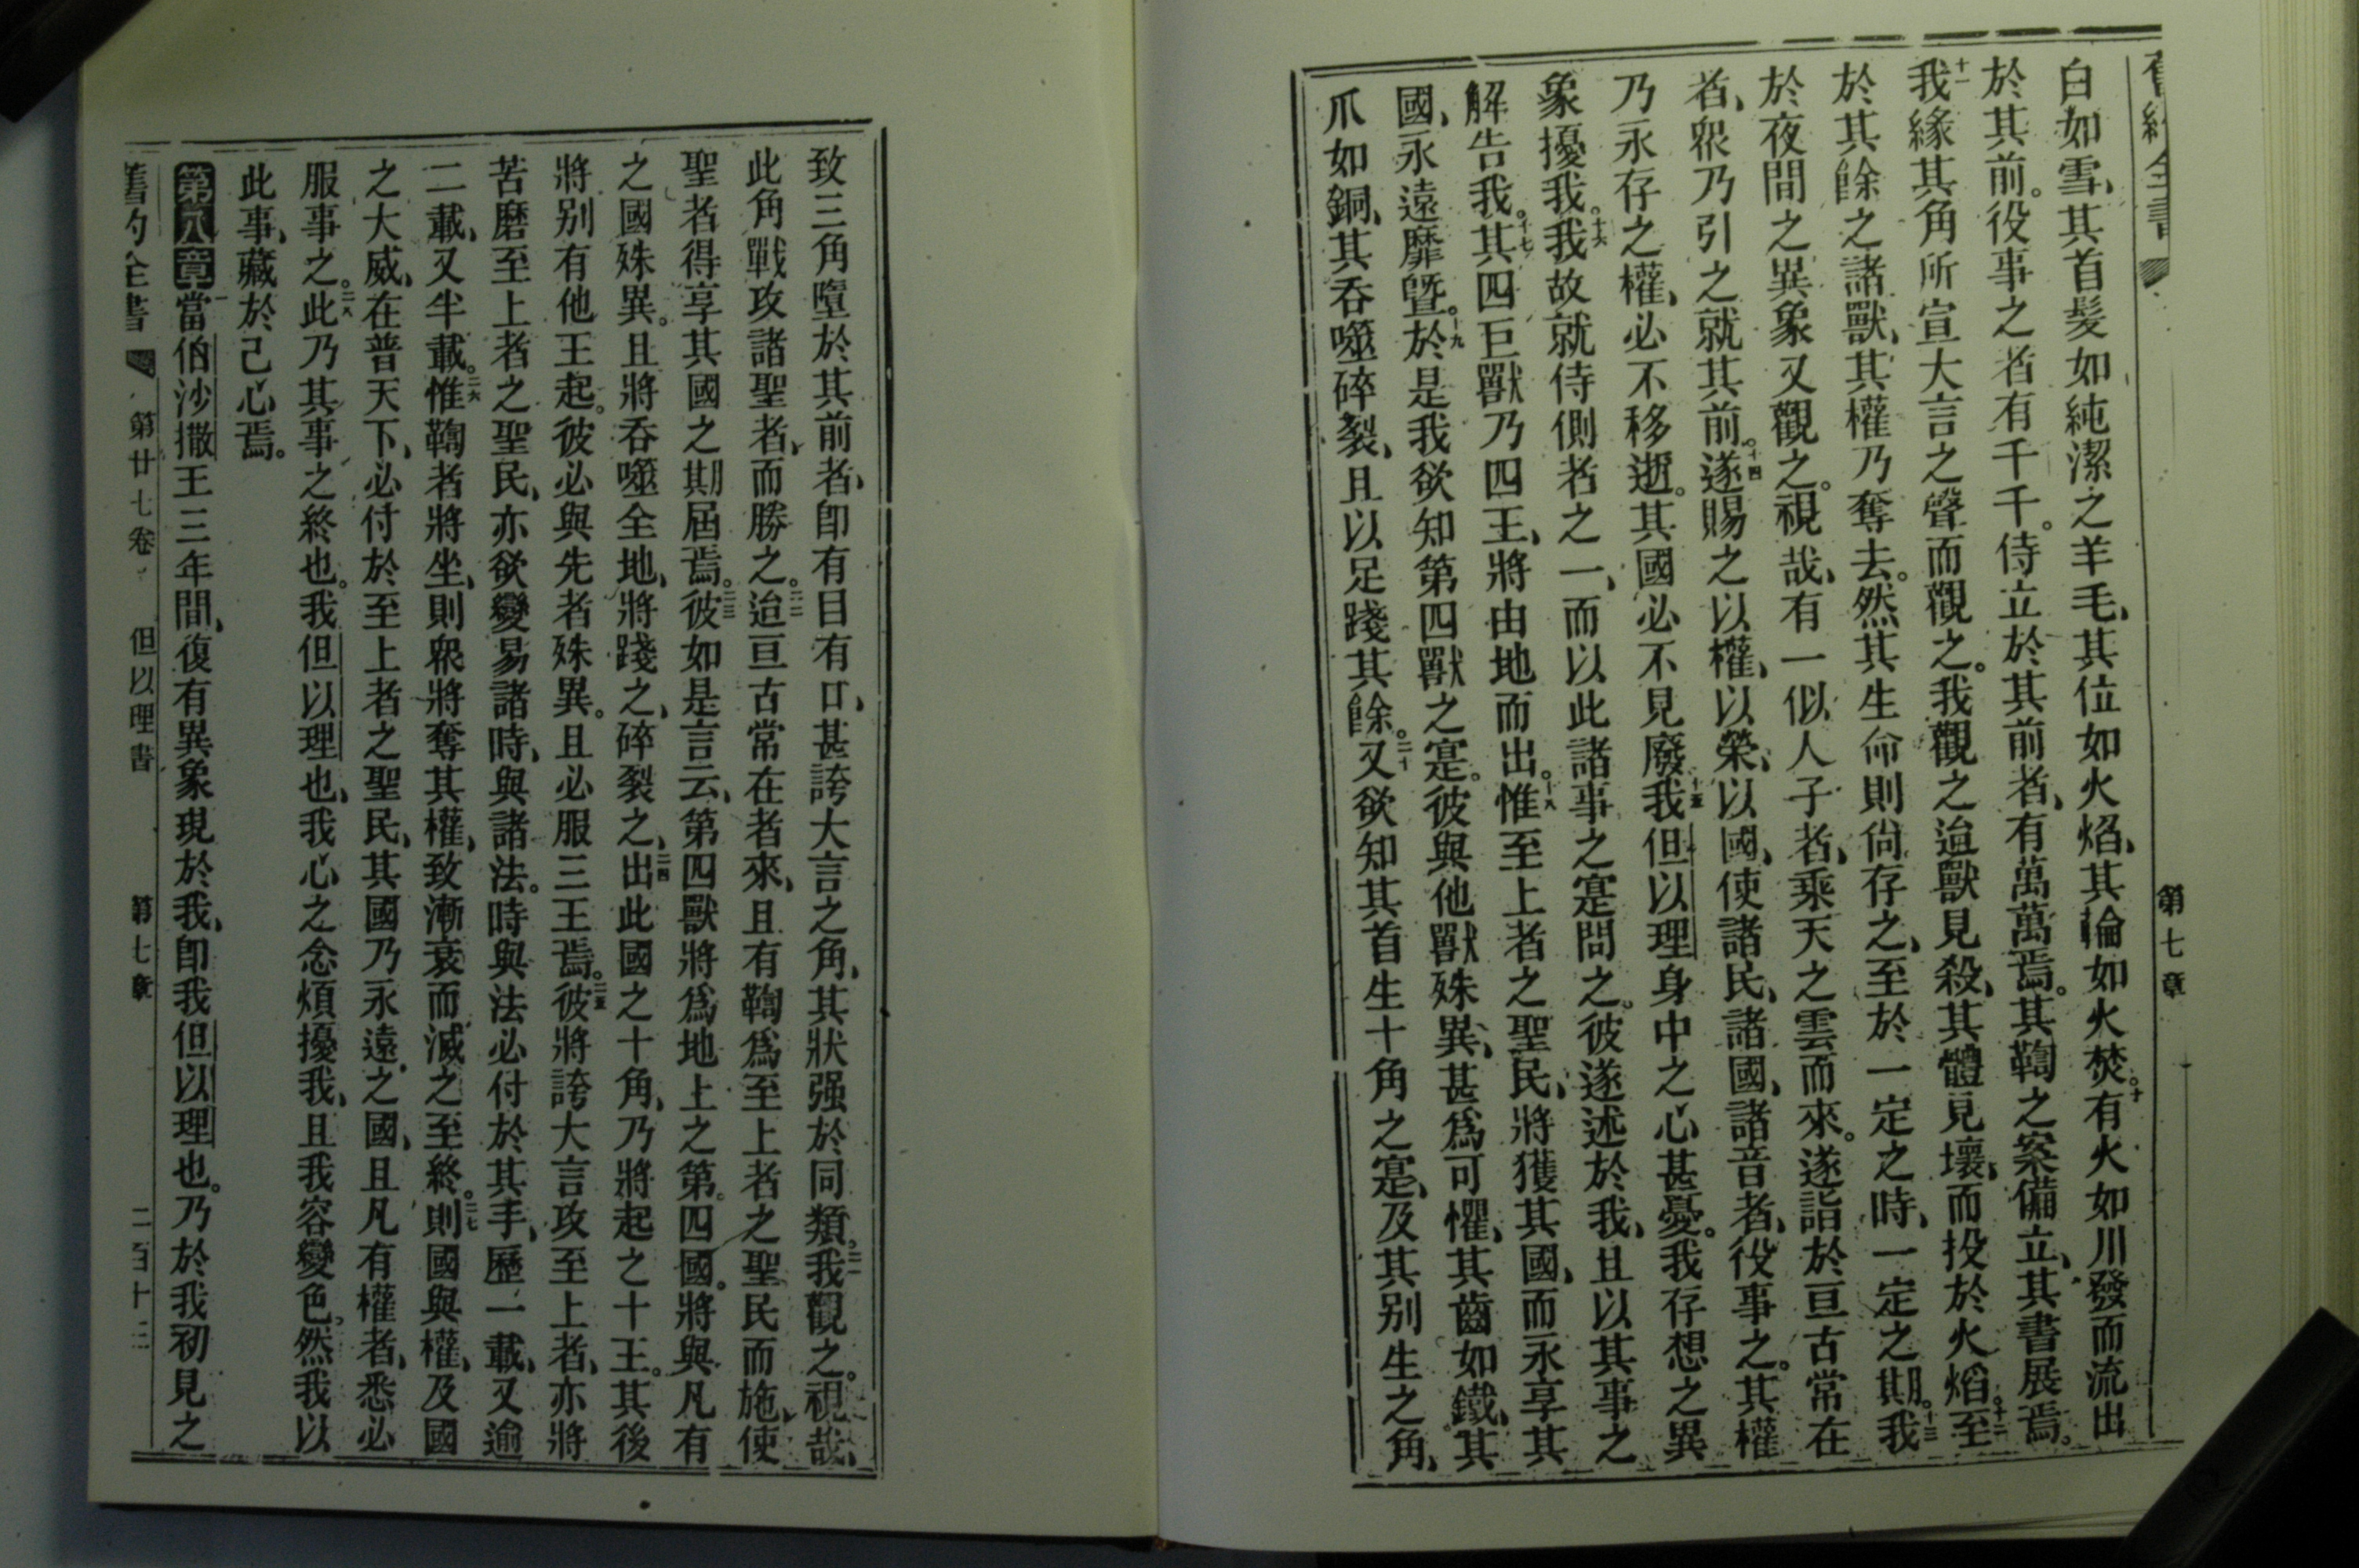 舊約全書
第七章
白如雪、其首髮如純潔之羊毛、其位如火焰、其輪如火焚。十有火如川發而流出
於其前。役事之者有千千。侍立於其前者、有萬萬焉。其鞫之案備立、其書展焉。
十一我緣其角所宣大言之聲而觀之。我觀之迨獸見殺、其體見壞、而投於火焰。十二至
於其餘之諸獸、其權乃奪去。然其生命則尙存之、至於一定之時、一定之期。十三我
於夜間之異象又觀之。視哉、有一似人子者、乘天之雲而來。遂詣於亘古常在
者、眾乃引之就其前。十四遂賜之以權、以榮、以國、使諸民、諸國、諸音者、役事之。其權
乃永存之權、必不移逝。其國必不見廢。十五我但以理身中之心甚憂。我存想之異
象擾我。十六我故就侍側者之一、而以此諸事之寔問之。彼遂述於我、且以其事之
解告我。十七其四巨獸乃四王、將由地而出。十八惟至上者之聖民、將獲其國、而永享其
國、永遠靡曁。十九於是我欲知第四獸之寔。彼與他獸殊異、甚爲可懼、其齒如鐵、其
爪如銅、其吞噬碎裂、且以足踐其餘。二十又欲知其首生十角之寔、及其别生之角、
致三角墮於其前者、卽有目有口、甚誇大言之角、其狀强於同類。二一我觀之。視哉、
此角戰攻諸聖者、而勝之。二二迨亘古常在者來、且有鞫爲至上者之聖民而施、使
聖者得享其國之期屆焉。二三彼如是言云、第四獸將爲地上之第四國。將與凡有
之國殊異。且將吞噬全地、將踐之、碎裂之、二四出此國之十角、乃將起之十王。其後
將别有他王起。彼必與先者殊異。且必服三王焉。二五彼將誇大言攻至上者、亦將
苦磨至上者之聖民、亦欲變易諸時、與諸法。時與法必付於其手、歷一載、又逾
二載、又半載。二六惟鞫者將坐、則眾將奪其權、致漸衰而滅之至終。二七則國與權、及國
之大威、在普天下、必付於至上者之聖民、其國乃永遠之國、且凡有權者、悉必
服事之。二八此乃其事之終也。我但以理也、我心之念煩擾我、且我容變色。然我以
此事、藏於己心焉。
第八章一當伯沙撒王三年間、復有異象現於我、卽我但以理也。乃於我初見之
舊約全書 第廿七卷 但以理書 第七章 二百十三